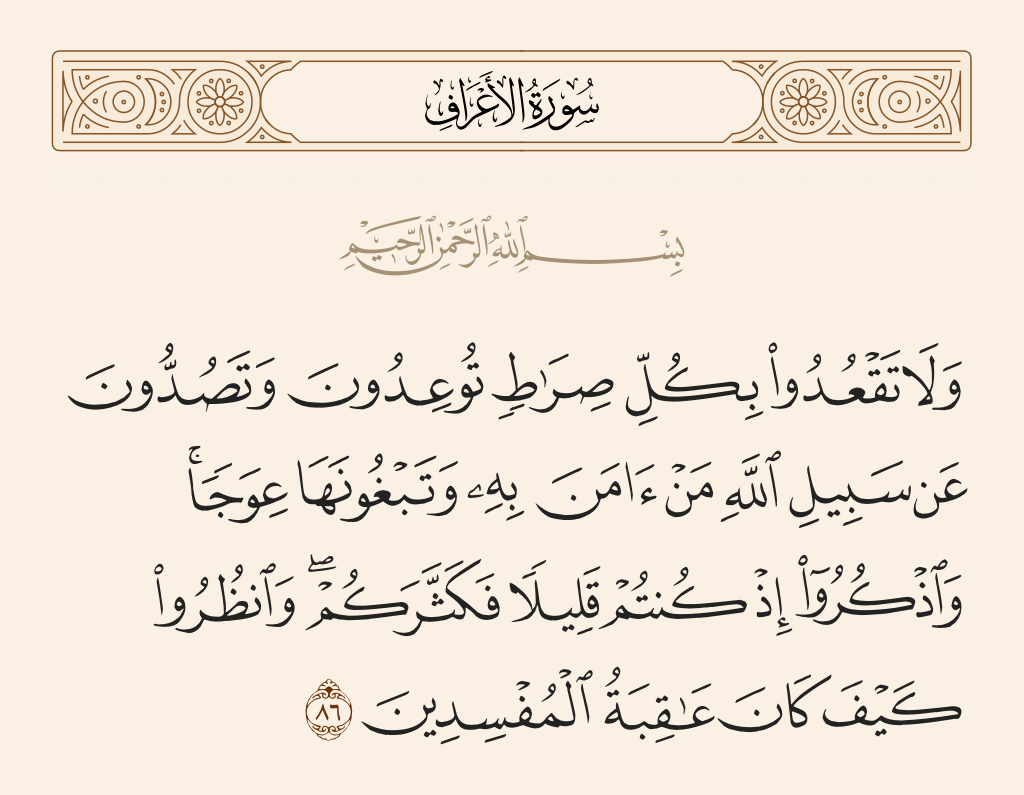 سُورَةُ الأَعْرَافِ
بِسْمِ ٱللَّهِ ٱلرَّحْمَٰنِ ٱلرَّحِيمِ
وَلَا تَقْعُدُوا۟ بِكُلِّ صِرَٰطٍ تُوعِدُونَ وَتَصُدُّونَ
عَن سَبِيلِ ٱللَّهِ مَنْ ءَامَنَ بِهِۦ وَتَبْغُونَهَا عِوَجًۭا ۚ
وَٱذْكُرُوٓا۟ إِذْ كُنتُمْ قَلِيلًۭا فَكَثَّرَكُمْ ۖ وَٱنظُرُوا۟
كَيْفَ كَانَ عَـٰقِبَةُ ٱلْمُفْسِدِينَ ٨٦